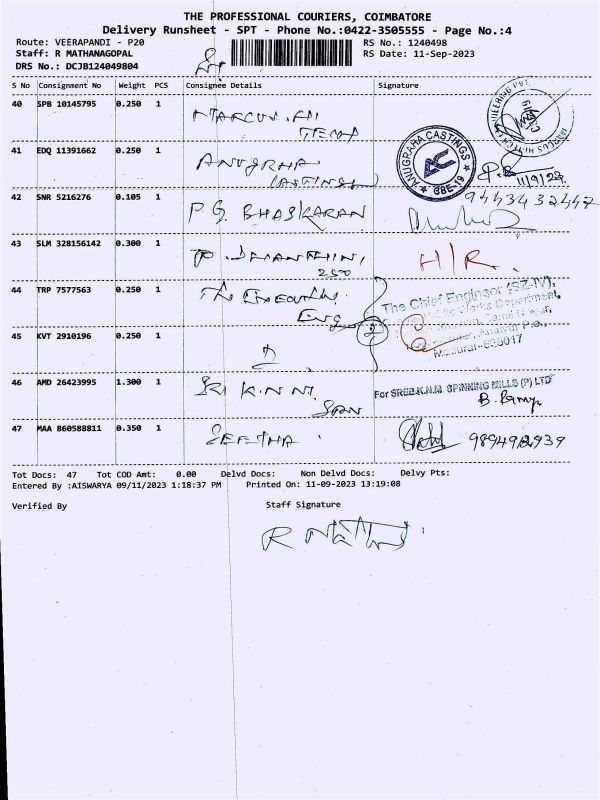 THE PROFESSIONAL COURIERS, COIMBATORE
Delivery Runsheet - SPT - Phone No.:0422-3505555 - Page No.:4
Route: VEERAPANDI - P20 RS No.: 1240498
Staff: R MATHANAGOPAL RS Date: 11-Sep-2023
DRS No.: DCJB124049804
S No Consignment No Weight PCS Consignee Details Signature
40 SPB 10145795 0.250 1
41 EDQ 11391662 0.250 1 ANUGRHA
CASTINGS
ANUGRAHA CASTINGS
CBE-19
11/9/23
42 SNR 5216276 0.105 1 P.G. BHASKARAN 9443432442
43 SLM 328156142 0.300 1 H/R.
44 TRP 7577563 0.250 1 The Executive
Eng
2
The Chief Engineer (SZ-IV),
Madurai-625017
45 KVT 2910196 0.250 1
46 AMD 26423995 1.300 1 SRI K.N.M.
For SREE K.N.M. SPINNING MILLS (P) LTD
47 MAA 860588811 0.350 1 SEETHA 9894992939
Tot Docs: 47 Tot COD Amt: 0.00 Delvd Docs: Non Delvd Docs: Delvy Pts:
Entered By :AISWARYA 09/11/2023 1:18:37 PM Printed On: 11-09-2023 13:19:08
Verified By Staff Signature